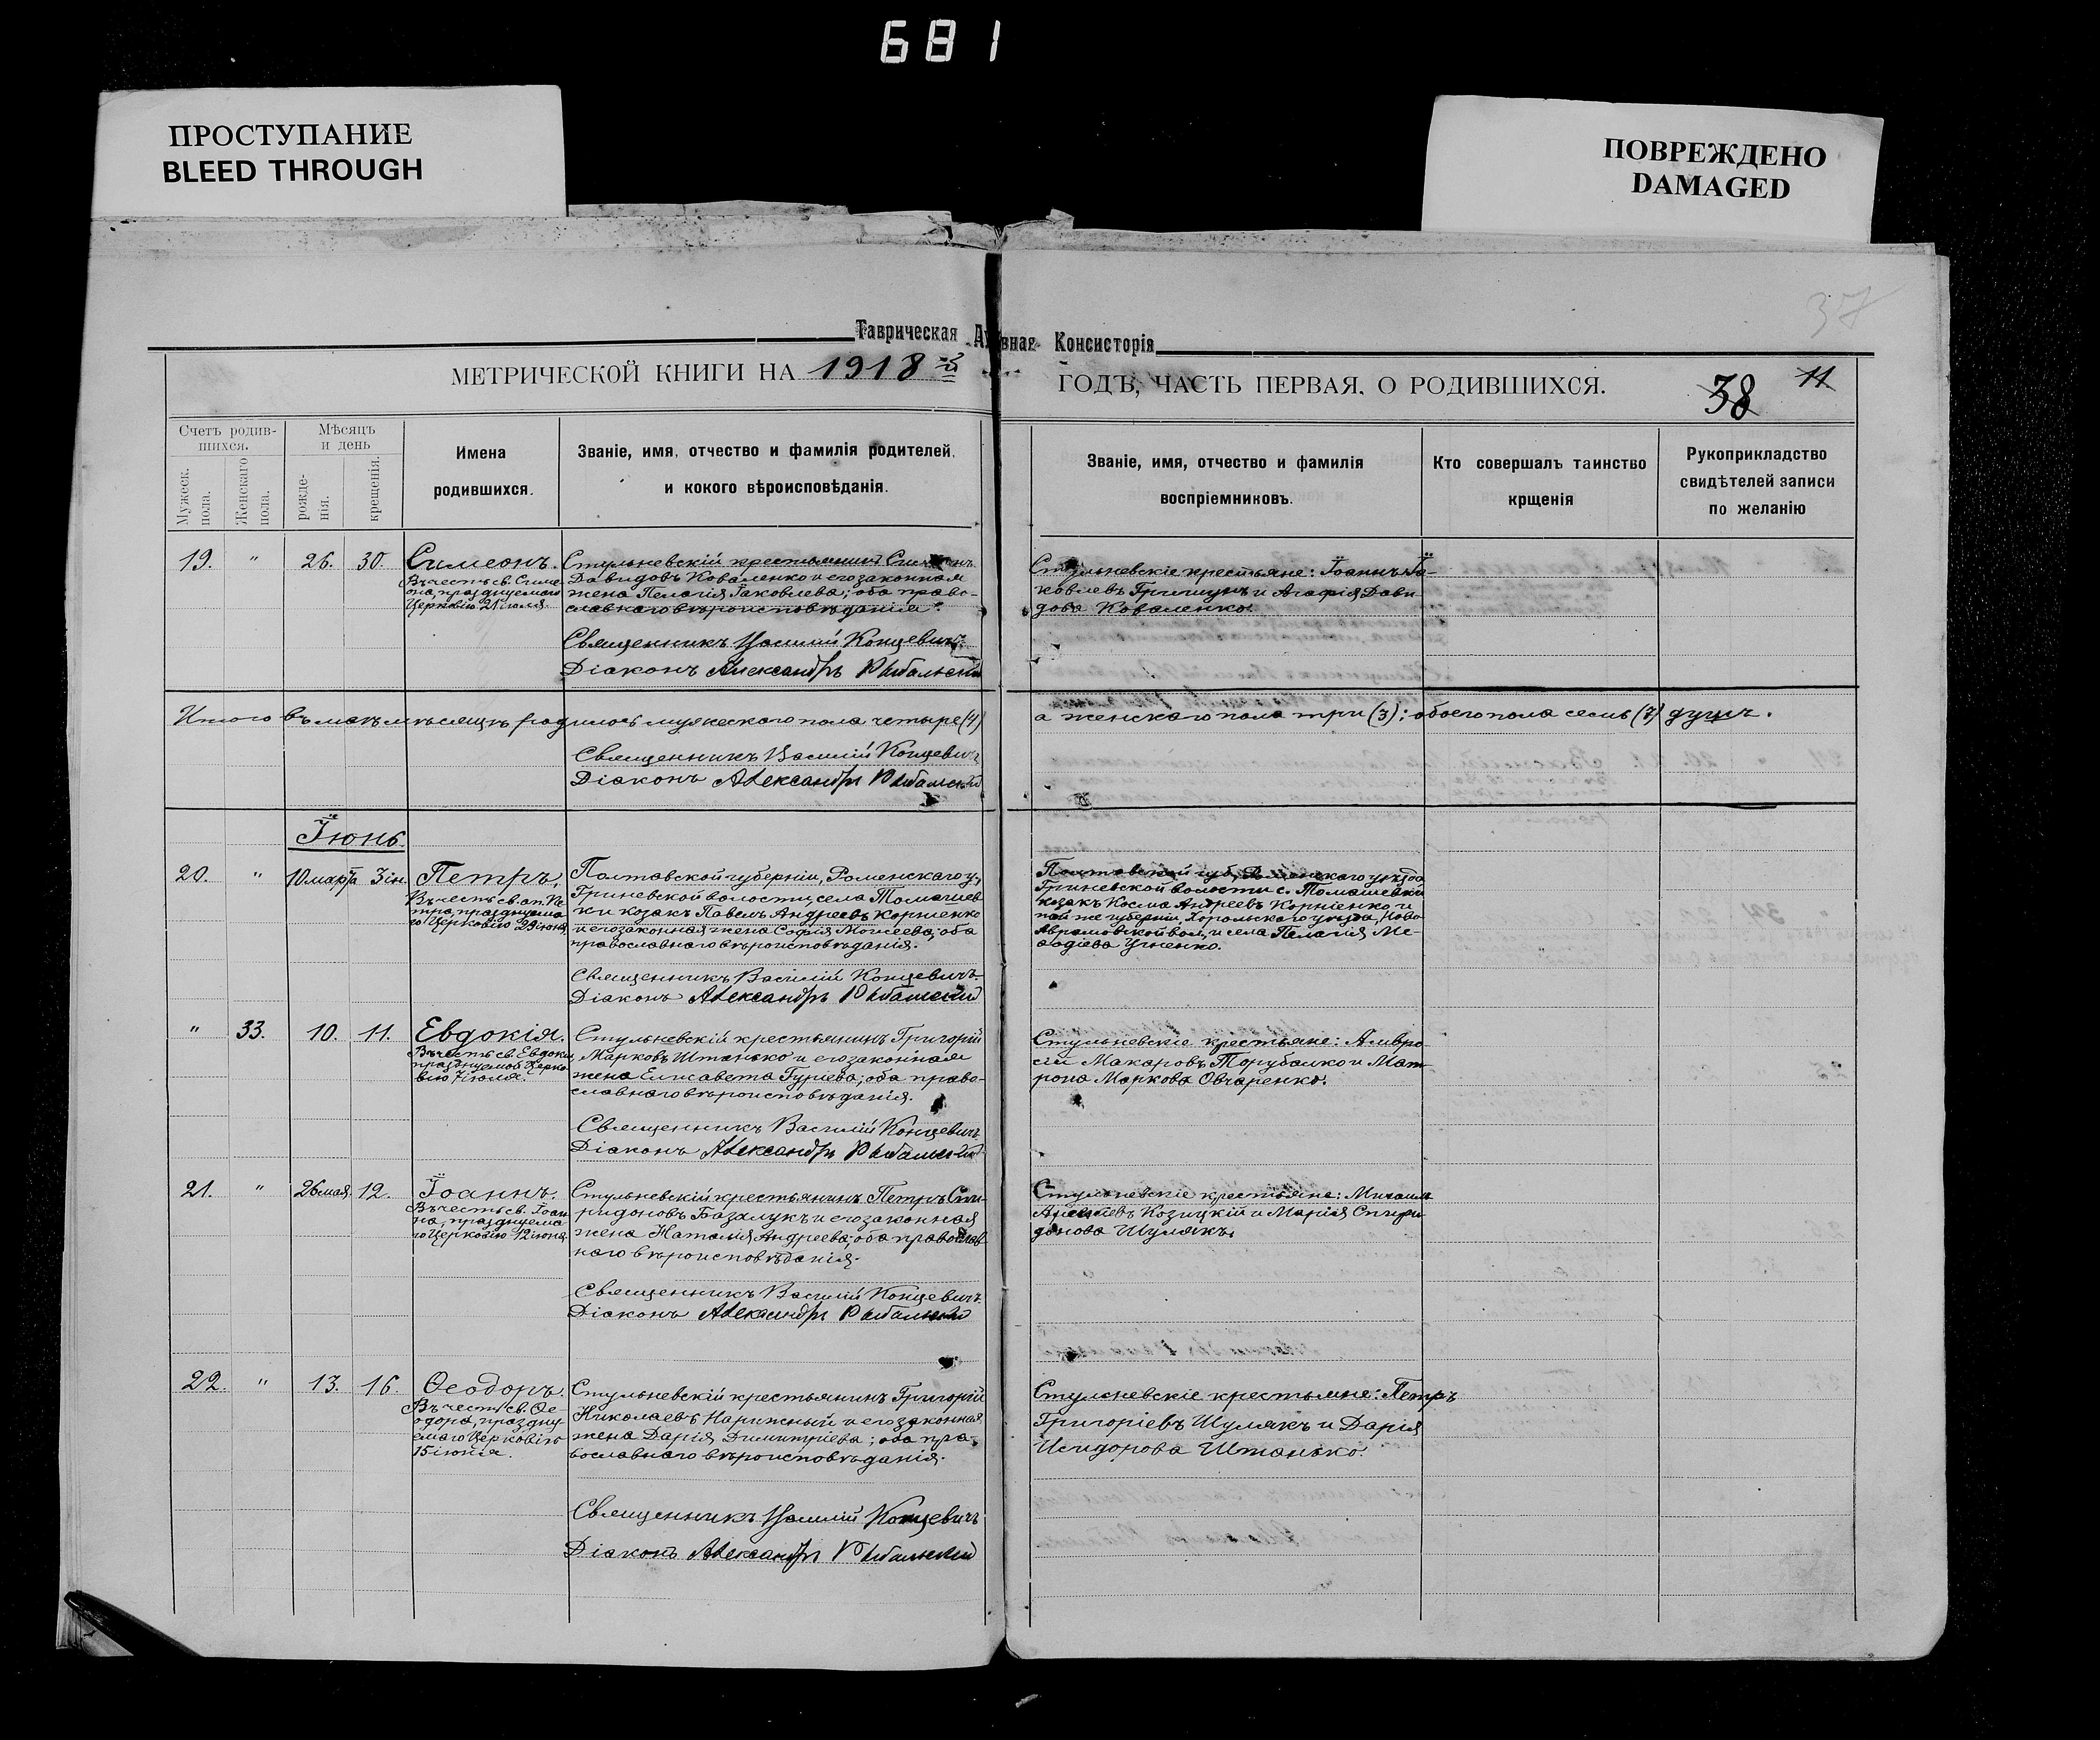 681
ПРОСТУПАНИЕ
BLEED THROUGH
ПОВРЕЖДЕНО
DAMAGED
37
Таврическая Консисторія
МЕТРИЧЕСКОЙ КНИГИ НА 1918 й
ГОДЪ, ЧАСТЬ ПЕРВАЯ, О РОДИВШИХСЯ.
38 11
Счетъ родив-
шихся.
Мужеск. пола.
Женскаго пола.
Мѣсяцъ
и день
рожде-
нія.
крещенія.
Имена
родившихся.
Званіе, имя, отчество и фамилія родителей,
и кокого вѣроисповѣданія.
Званіе, имя, отчество и фамилія
воспріемниковъ.
Кто совершалъ таинство
крщенія
Рукоприкладство
свидѣтелей записи
по желанію
19. " 26. 30.
Симеонъ.
Въ честь св. Симе-
она, празднуемаго
Церковію 21 іюля.
Стульневскій крестьянинъ
Давидовъ Коваленко и его законная
жена Пелагія Іаковлева; оба право-
славнаго вѣроисповѣданія.
Священникъ Василій Концевичъ
Діаконъ Александръ Рыбальскій
Стульневскіе крестьяне: Іоаннъ Іа-
ковлевъ Грищунъ и Агафія Дави-
дова Коваленко.
Итого въ маѣ мѣсяцѣ родилось мужескаго пола четыре (4)
а женскаго пола три (3); обоего пола семь (7) душъ.
Священникъ Василій Концевичъ
Діаконъ Александръ Рыбальскій
Іюнь.
20. " 10 марта 3 ін.
Петръ.
Въ честь св. ап. Пе-
тра, празднуема-
го Церковію 29 іюня.
Полтавской губерніи, Роменскаго у.,
Гриневской волости, села Томашев-
ки козакъ Павелъ Андреевъ Корніенко
и его законная жена Софія Моисеева; оба
православнаго вѣроисповѣданія.
Священникъ Василій Концевичъ
Діаконъ Александръ Рыбальскій
Полтавской губ., Роменскаго уѣзда
Гриневской волости с. Томашевки
козакъ Косма Андреевъ Корніенко и
той же губерніи, Хорольскаго уѣзда, Ново-
Аврамовской вол. и села Пелагія Ме-
ѳодіева
" 33. 10. 11.
Евдокія.
Въ честь св. Евдокіи,
празднуемой Церко-
вію 7 іюля.
Стульневскій крестьянинъ Григорій
Марковъ Штанько и его законная
жена Елисавета Гуріева; оба право-
славнаго вѣроисповѣданія.
Священникъ Василій Концевичъ
Діаконъ Александръ Рыбальскій
Стульневскіе крестьяне: Амвро-
сій Макаровъ Торубалко и Мат-
рона Маркова Овчаренко.
21. " 26 мая. 12.
Іоаннъ.
Въ честь св. Іоан-
на, празднуема-
го Церковію 12 іюня.
Стульневскій крестьянинъ Петръ Спи-
ридоновъ Базалукъ и его законная
жена Наталія Андреева; оба православ-
наго вѣроисповѣданія.
Священникъ Василій Концевичъ
Діаконъ Александръ Рыбальскій
Стульневскіе крестьяне: Михаилъ
Козицкій и Марія Спири-
донова Шулякъ.
22. " 13. 16.
Ѳеодоръ.
Въ честь св. Ѳе-
одора, праздну-
емаго Церковію
15 іюня.
Стульневскій крестьянинъ Григорій
Николаевъ Нарижный и его законная
жена Дарія Димитріева; оба пра-
вославнаго вѣроисповѣданія.
Священникъ Василій Концевичъ
Діаконъ Александръ Рыбальскій
Стульневскіе крестьяне: Петръ
Григоріевъ Шулякъ и Дарія
Исидорова Штанько.